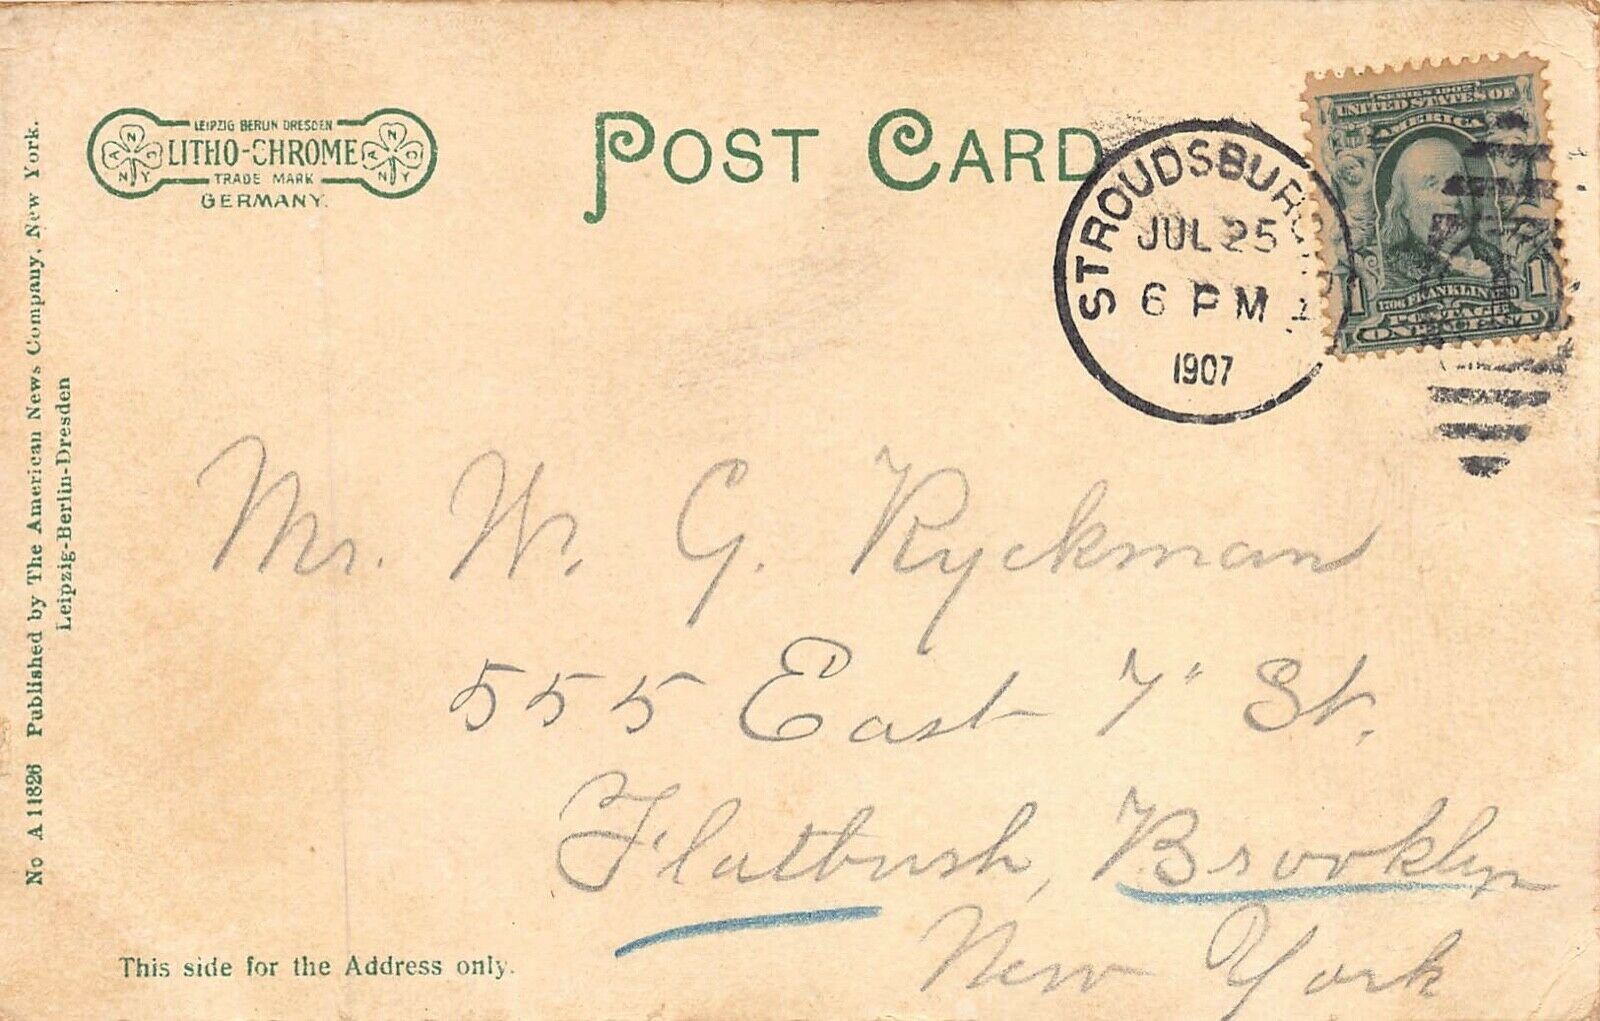 No A 11826 Published by The American News Company, New York.
Leipzig-Berlin-Dresden
LEIPZIG BERLIN DRESDEN
LITHO-CHROME
TRADE MARK
GERMANY.
A N C
N Y
A N C
N Y
POST CARD
STROUDSBURG
JUL 25
6 PM
1907
SERIES 1902
UNITED STATES OF
AMERICA
1 1
FRANKLIN
POSTAGE
ONE CENT
Mr. W. G. Ryckman
555 East 7" St.
Flatbush, Brooklyn
New York
This side for the Address only.